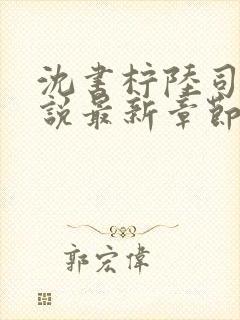 沈書柠陸司
說最新章節
郭宏偉